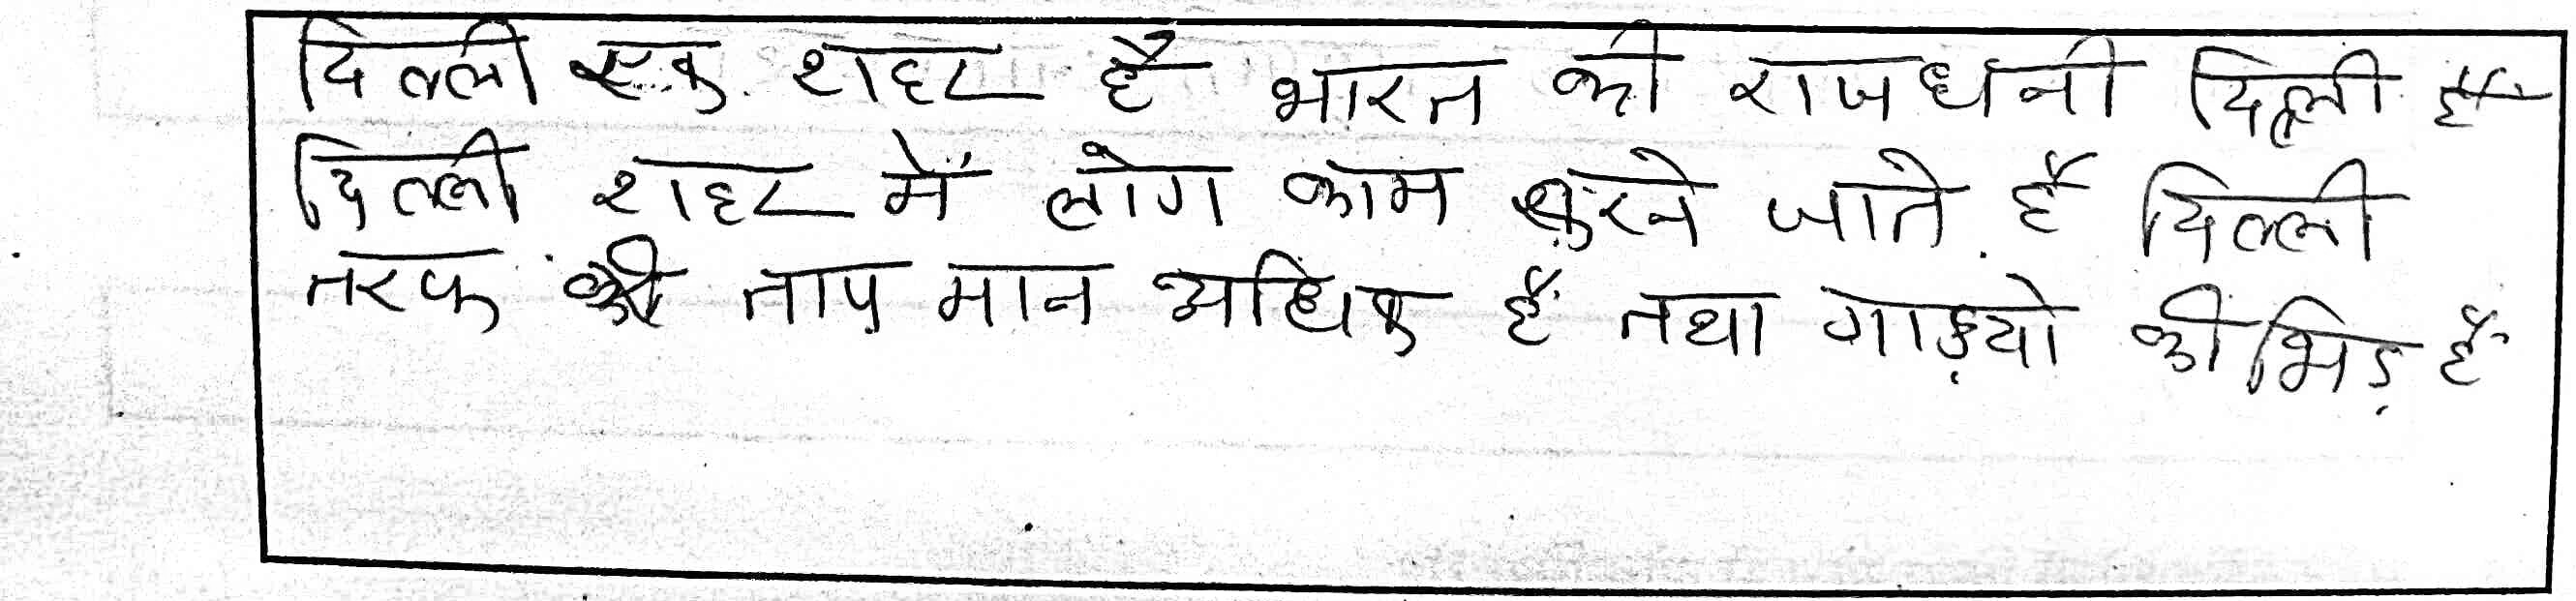 दिल्ली एक शहर है भारत की राजधनी दिल्ली है
दिल्ली शहर में लोग काम करने जाते है दिल्ली
तरफ की ताप मान अधिक है तथा गाड़यो की भिड़ है